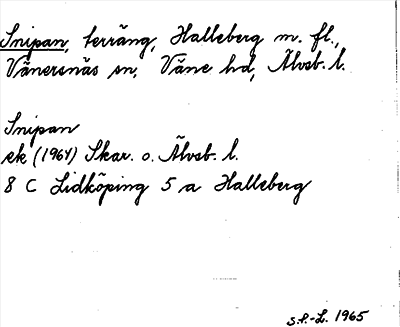 Snipan, terräng, Halleberg m. fl.,
Vänersnäs sn, Väne hd, Älvsb. l.
Snipan
ek (1964) Skar. o. Älvsb. l.
8 C Lidköping 5 a Halleberg
S.F.-L. 1965